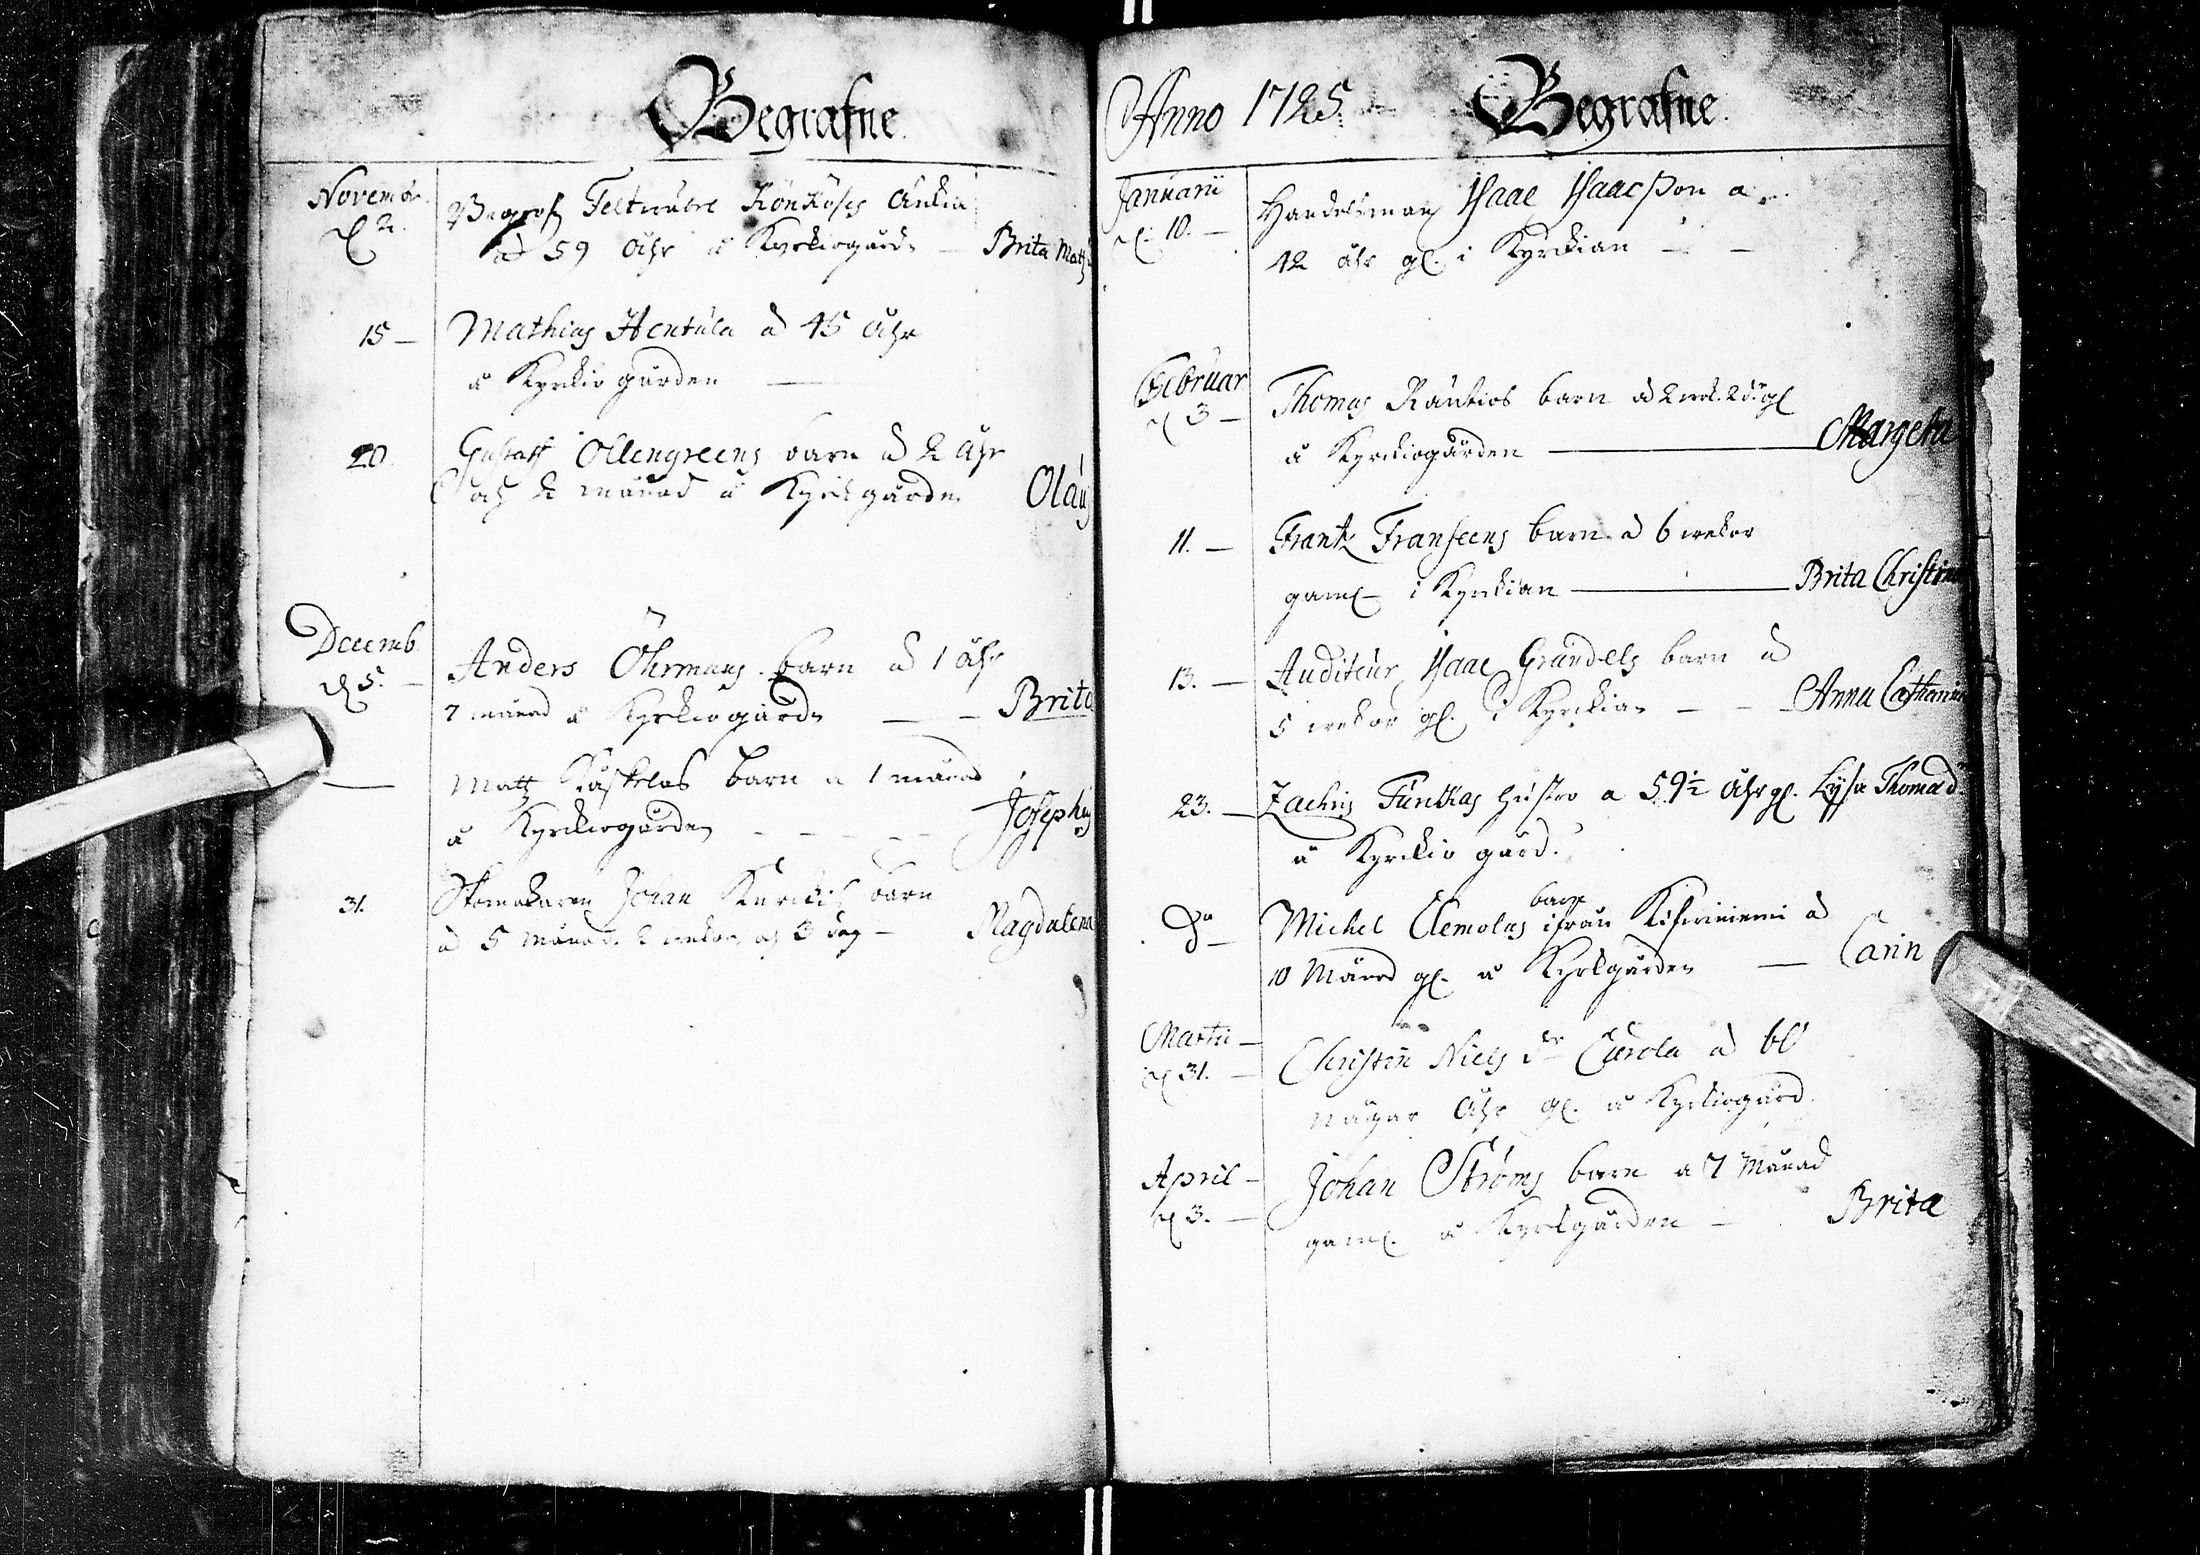 Begrafne.
Novembr.
d 2.
Begrofs Feltwäbel Könkös Ánkia
ad 59 Åhr å Kyrkiogårdn — Brita Matz
15 — Mathias Hentula ad 45 Åhr
å Kyrkio gården —
20. Gustaff Ollengreens barn ad 2 Åhr
och 2 månad å Kyrkgårdn Olaus
Decemb.
d 5. — Anders Öhrmans barn ad 1 Åhr
7 månad å Kyrkiogårdn — — Brita
— Matz barn a 1 månad
å Kyrkiogården — — — — Josephus
31. Skomakaren Johan barn
ad 5 månad. 2 wekor och 3 dag — Magdalena
Anno 1725 Begrafne.
Januarii
d. 10. — Handelsman Isaac Isaacsson a
42 åhr gl. i Kyrkian — —
Februar
d 3 — Thomas Rautios barn ad 2 wek. 2 gl
å Kyrkiogården — Margeta
11. — Frantz Franseens barn ad 6 wekor
gaml i Kyrkian — Brita Christina
13. — Auditeur Isaac Grundels barn ad
5 wekor gl. i Kyrkian — — — Anna Catharina
23. — Zachris Funckas hustro a 59½ Åhr gl. Lysa Thomæ d.
å Kyrkio gård.
Do — Michel Clemolas barn ifrån Kiswiniemi ad
10 Månad gl. å Kyrkgården — Carin
Martii —
d 31. — Christin Niels dr ad 60
någar Åhr gl. å Kyrkiogård.
April —
d 3. — Johan Ströms barn a 7 Månad
gaml. å Kyrkgården — Brita